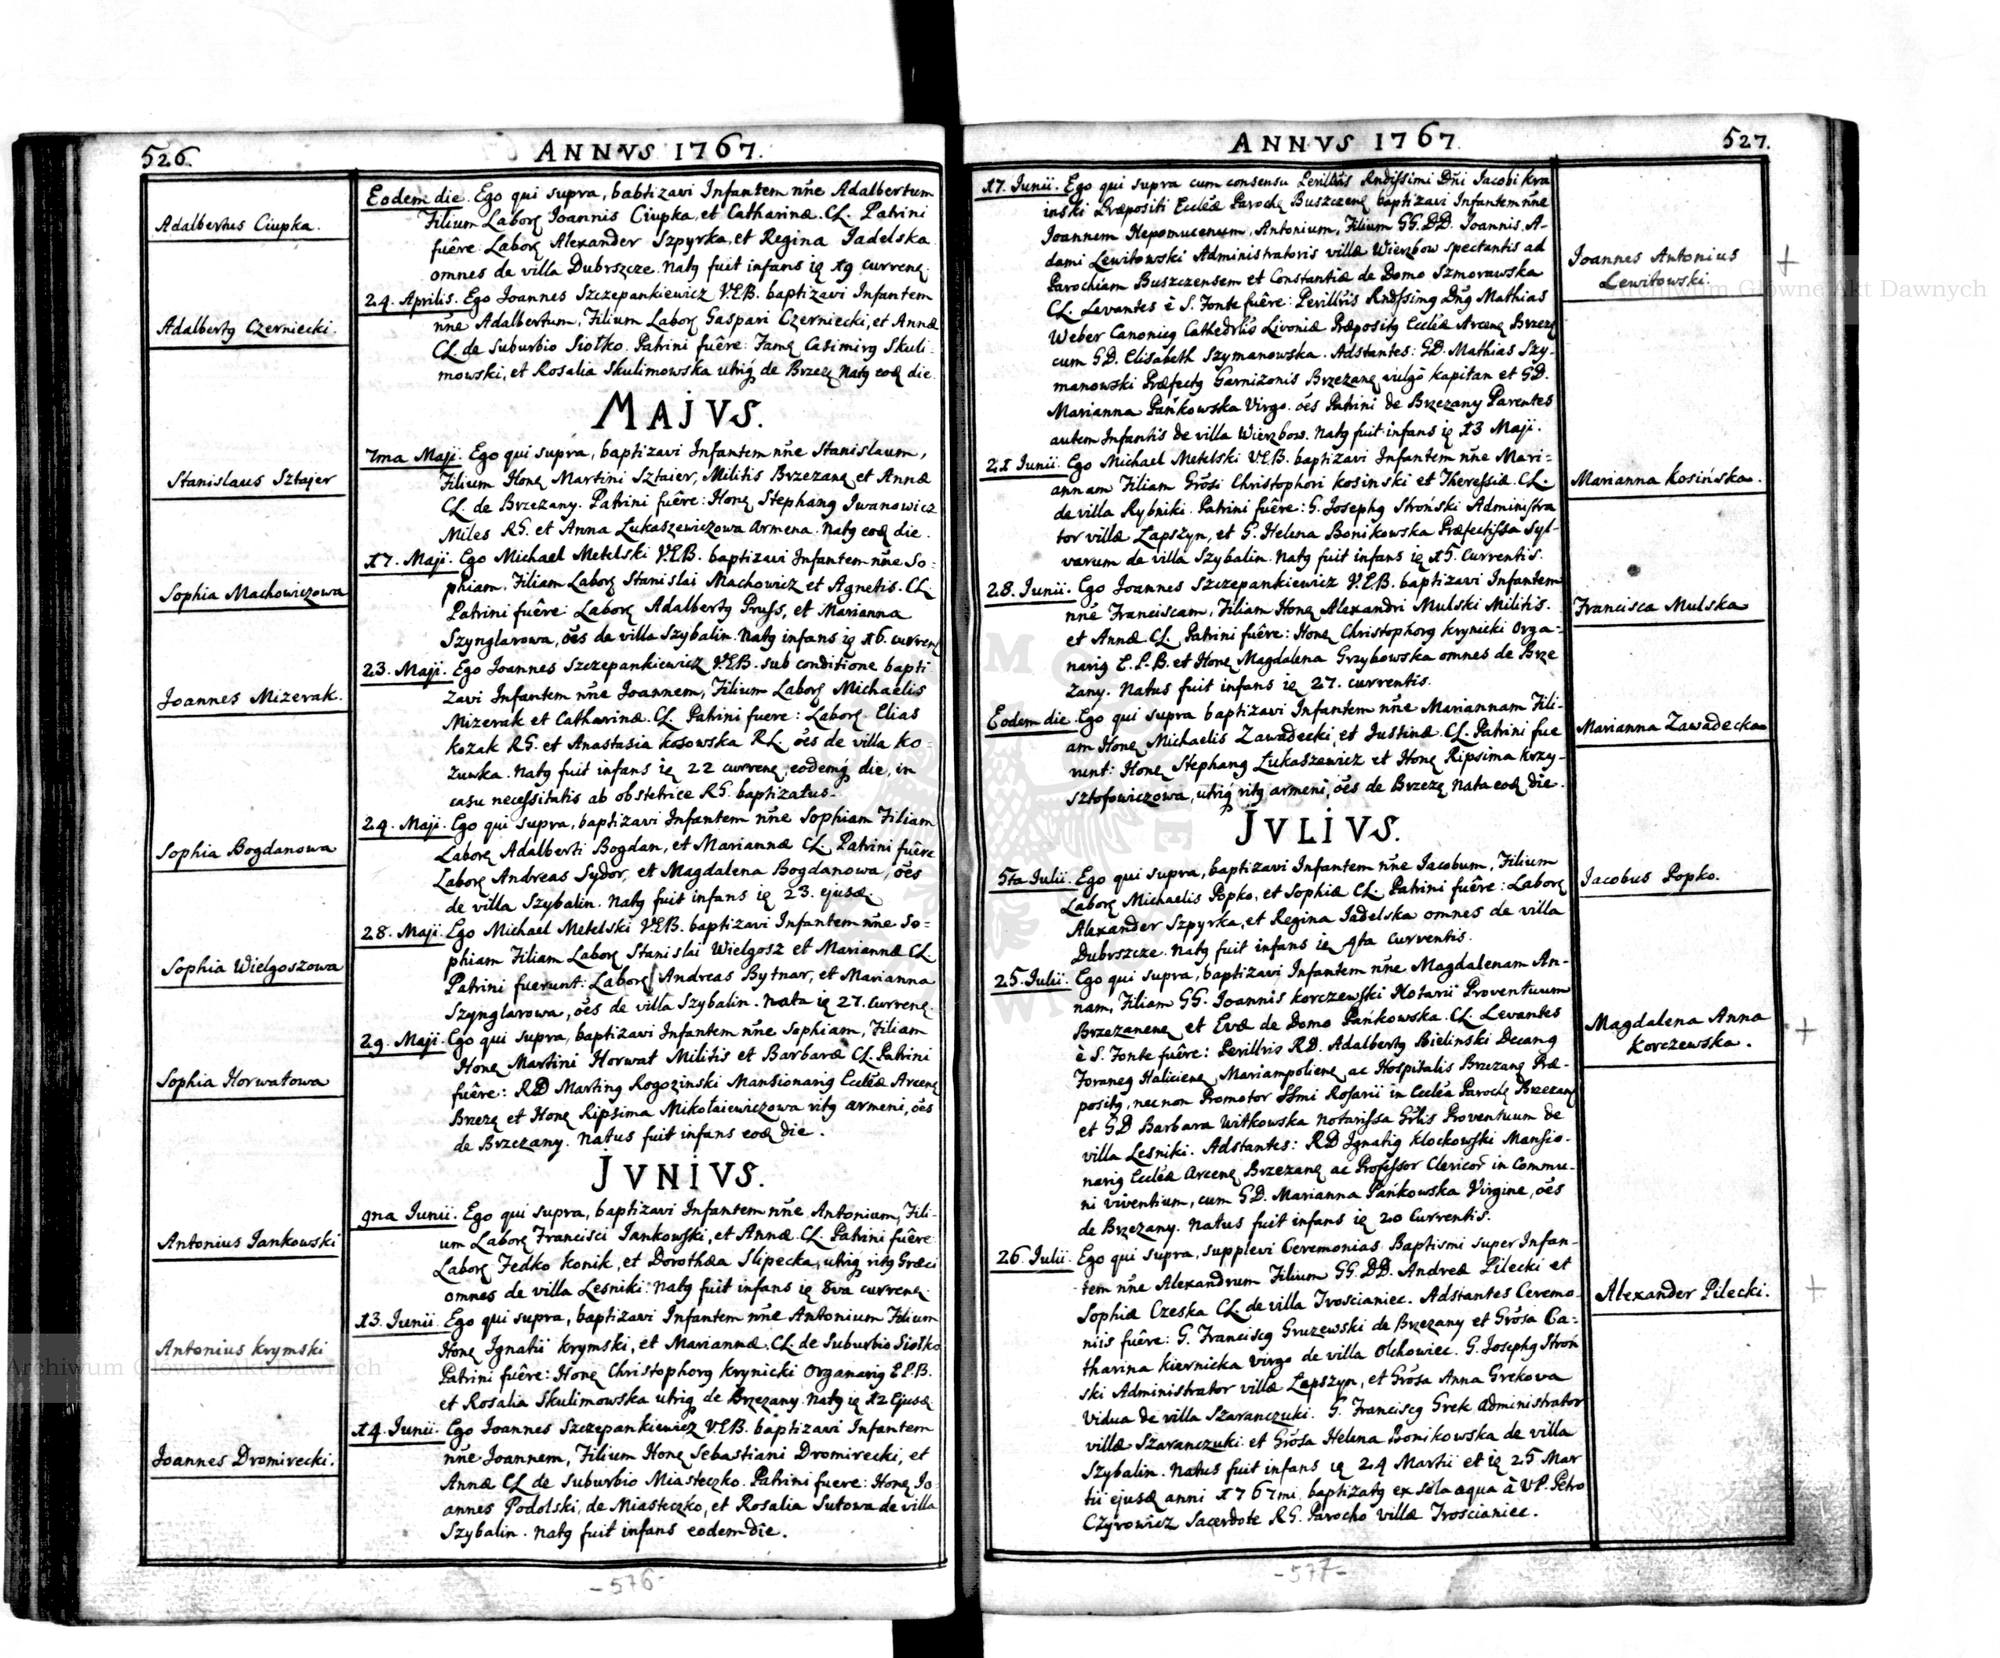 526.
ANNVS 1767.
Adalbertus Ciupka.
Eodem die. Ego qui supra, babtizavi Infantem nñe Adalbertum
Filium Laborę Joannis Ciupka, et Catharinæ. CL. Patrini
fuêre. Laborę Alexander Szpyrka, et Regina Jadelska
omnes de villa Dubrszcze. Natq fuit infans ię 19 currenę.
Adalbertq Czerniecki.
24. Aprilis. Ego Joannes Szczepankiewicz V.E.B. baptizavi Infantem
nñe Adalbertum, Filium Laborę Gaspari Czerniecki, et Annæ
CL. de Suburbio Siołko. Patrini fuêre: Famę Casimirq Skuli-
mowski, et Rosalia Skulimowska utriq́ de Brzezę Natq eoꝗ die.
MAJVS.
Stanislaus Sztajer
7ma Maji. Ego qui supra, baptizavi Infantem nñe Stanislaum,
Filium Honę Martini Sztaier, Militis Brzezanę et Annæ
CL. de Brzezany. Patrini fuêre: Honę Stephanq Iwanowicz
Miles RG. et Anna Łukaszewiczowa Armena. Natq eoꝗ die.
Sophia Machowiczowa
17. Maji. Ego Michael Metelski V.E.B. baptizavi Infantem nñe So=
phiam, Filiam Laborę Stanislai Machowicz et Agnetis. CL
Patrini fuêre: Laborę Adalbertq Pruss, et Marianna
Szynglarowa, oẽs de villa Szybalin. Natq infans ię 16. currenę
Joannes Mizerak.
23. Maji. Ego Joannes Szczepankiewicz V.E.B. sub conditione bapti
zavi Infantem nñe Joannem, Filium Laborę Michaelis
Mizerak et Catharinæ. CL. Patrini fuere: Laborę. Elias
Kozak RG. et Anastasia Kosowska RL. oẽs de villa Ko=
zuwka. Natq fuit infans ię 22 currenę, eodemq́ die, in
casu necessitatis ab obstetrice RG. baptizatus.
Sophia Bogdanowa
24. Maji. Ego qui supra, baptizavi Infantem nñe Sophiam Filiam
Laborę Adalberti Bogdan, et Mariannæ CL. Patrini fuêre
Laborę Andreas Sydor, et Magdalena Bogdanowa, oẽs
de villa Szybalin. Natq fuit infans ię 23. ejusꝗ.
Sophia Wielgoszowa
28. Maji. Ego Michael Metelski V.E.B. baptizavi Infantem nñe So=
phiam Filiam Laborę Stanislai Wielgosz et Mariannæ CL.
Patrini fuerunt: Laborę Andreas Bytnar, et Marianna
Szynglarowa, oẽs de villa Szybalin. Nata ię 27. Currenę.
Sophia Horwatowa
29. Maji. Ego qui supra, baptizavi Infantem nñe Sophiam, Filiam
Honę Martini Horwat Militis et Barbaræ CL. Patrini
fuêre: RD Martinq Rogozinski Mansionariq Eccłæ Arcenę
Brzezę et Honę Ripsima Mikołaiewiczowa ritq armeni, oẽs
de Brzezany. Natus fuit infans eoꝗ die.
JVNIVS.
Antonius Jankowski
9na Junii. Ego qui supra, baptizavi Infantem nñe Antonium, Fili-
um Laborę Francisci Jankowski, et Annæ CL. Patrini fuêre
Laborę Fedko Konik, et Dorothæa Slipecka, utriq ritq Græci
omnes de villa Lesniki. Natq fuit infans ię 8va currenę.
Antonius Krymski
13. Junii. Ego qui supra, baptizavi Infantem nñe Antonium Filium
Honę Ignatii Krymski, et Mariannæ. CL. de Suburbio Siołko
Patrini fuêre: Honę Christophorq Krynicki Organariq E.P.B.
et Rosalia Skulimowska utriq de Brzezany. Natq ię 12 Ejusꝗ
Joannes Dromirecki.
14. Junii. Ego Joannes Szczepankiewicz V.E.B. baptizavi Infantem
nñe Joannem, Filium Honę Sebastiani Dromirecki, et
Annæ CL de Suburbio Miasteczko. Patrini fuere: Honę Jo-
annes Podolski, de Miasteczko, et Rosalia Sutowa de villa
Szybalin. Natq fuit infans eodem die.
-576-
ANNVS 1767.
527.
17. Junii. Ego qui supra cum consensu Perillris Rndissimi Dñi Jacobi Kra
inski Præpositi Eccłæ Parochę Buszczenę baptizavi Infantem nñe
Joannem Nepomucenum, Antonium, Filium GG. DD. Joannis A-
dami Lewitowski Administratoris villæ Wierzbow spectantis ad
Parochiam Buszczensem et Constantiæ de Domo Szmorawska
CL. Levantes è S. Fonte fuêre: Perillris Rndissimq Dñq Mathias
Weber Canonicq Cathedrlis Livoniæ Præpositq Eccłæ Arcenę Brzezę
cum GD. Elisabeth Szymanowska. Adstantes: GD. Mathias Szy-
manowski Præfectq Garnizonis Brzezanę vulgò Kapitan et GD.
Marianna Pańkowska Virgo. oẽs Patrini de Brzezany Parentes
autem Infantis de villa Wierzbow. Natq fuit infans ię 13 Maji.
Joannes Antonius
Lewitowski.
21 Junii. Ego Michael Metelski V.E.B. baptizavi Infantem nñe Mari-
annam Filiam Grõsi Christophori Kosinski et Theressiæ CL.
de villa Rybniki. Patrini fuêre: G. Josephq Stroński Administra
tor villæ Lapszyn, et G. Helena Bonikowska Præfectissa Syl-
varum de villa Szybalin. Natq fuit infans ię 15. Currentis.
Marianna Kosińska.
28. Junii. Ego Joannes Szczepankiewicz V.E.B. baptizavi Infantem
nñe Franciscam, Filiam Honę Alexandri Mulski Militis.
et Annæ CL. Patrini fuêre: Honę Christophorq Krynicki Orga-
nariq E.P.B. et Honę Magdalena Grzybowska omnes de Brze
zany. Natus fuit infans ię 27. currentis.
Francisca Mulska
Eodem die. Ego qui supra baptizavi Infantem nñe Mariannam Fili-
am Honę Michaelis Zawadecki, et Justinæ CL. Patrini fue
runt: Honę Stephanq Łukaszewicz et Honę Ripsima Krzy-
sztofowiczowa, utriq́ ritq armeni, oẽs de Brzezę Nata eoꝗ die.
Marianna Zawadecka
JVLIVS.
5ta Julii. Ego qui supra, baptizavi Infantem nñe Jacobum, Filium
Laborę Michaelis Popko, et Sophiæ CL. Patrini fuêre: Laborę
Alexander Szpyrka, et Regina Jadelska omnes de villa
Dubrszcze. Natq fuit infans ię 4ta Currentis.
Jacobus Popko.
25. Julii. Ego qui supra, baptizavi Infantem nñe Magdalenam An-
nam, Filiam GG. Joannis Korczewski Notarii Proventuum
Brzezanenę et Evæ de Domo Pańkowska. CL. Levantes
è S. Fonte fuêre: Perillris RD. Adalbertq Bielinski Decanq
Foraneq Halicienę, Mariampolienę ac Hospitalis Brzezanę Præ-
positq, necnon Promotor SSmi Rosarii in Eccłæa Parochę Brzezanę
et GD Barbara Witkowska Notarissa Grlis Proventuum de
villa Lesniki. Adstantes: RD Ignatiq Klockowski Mansio-
nariq Eccłæ Arcenę Brzezanę ac Professor Clericor in Commu-
ni viventium, cum GD. Marianna Pańkowska Virgine, oẽs
de Brzezany. Natus fuit infans ię 20 Currentis.
Magdalena Anna
Korczewska.
26. Julii. Ego qui supra, supplevi Ceremonias Baptismi super Infan-
tem nñe Alexandrum Filium GG. DD. Andreæ Pilecki et
Sophiæ Czeska CL. de villa Troscianiec. Adstantes Ceremo-
niis fuêre: G. Franciscq Gruzewski de Brzezany et Grõsa Ca-
tharina Kiernicka Virgo de villa Olchowiec. G. Josephq Stroń
ski Administrator villæ Lapszyn, et Grõsa Anna Grekova
Vidua de villa Szaranczuki. G. Franciscq Grek Administrator
villæ Szaranczuki et Grõsa Helena Bonikowska de villa
Szybalin. Natus fuit infans ię 24 Martii et ię 25 Mar
tii ejusꝗ anni 1767mi, baptizatq ex sola aqua à VP. Petro
Czyrowicz Sacerdote RG. Parocho villæ Troscianiec.
Alexander Pilecki.
-577-
Archiwum Główne Akt Dawnych
Archiwum Główne Akt Dawnych